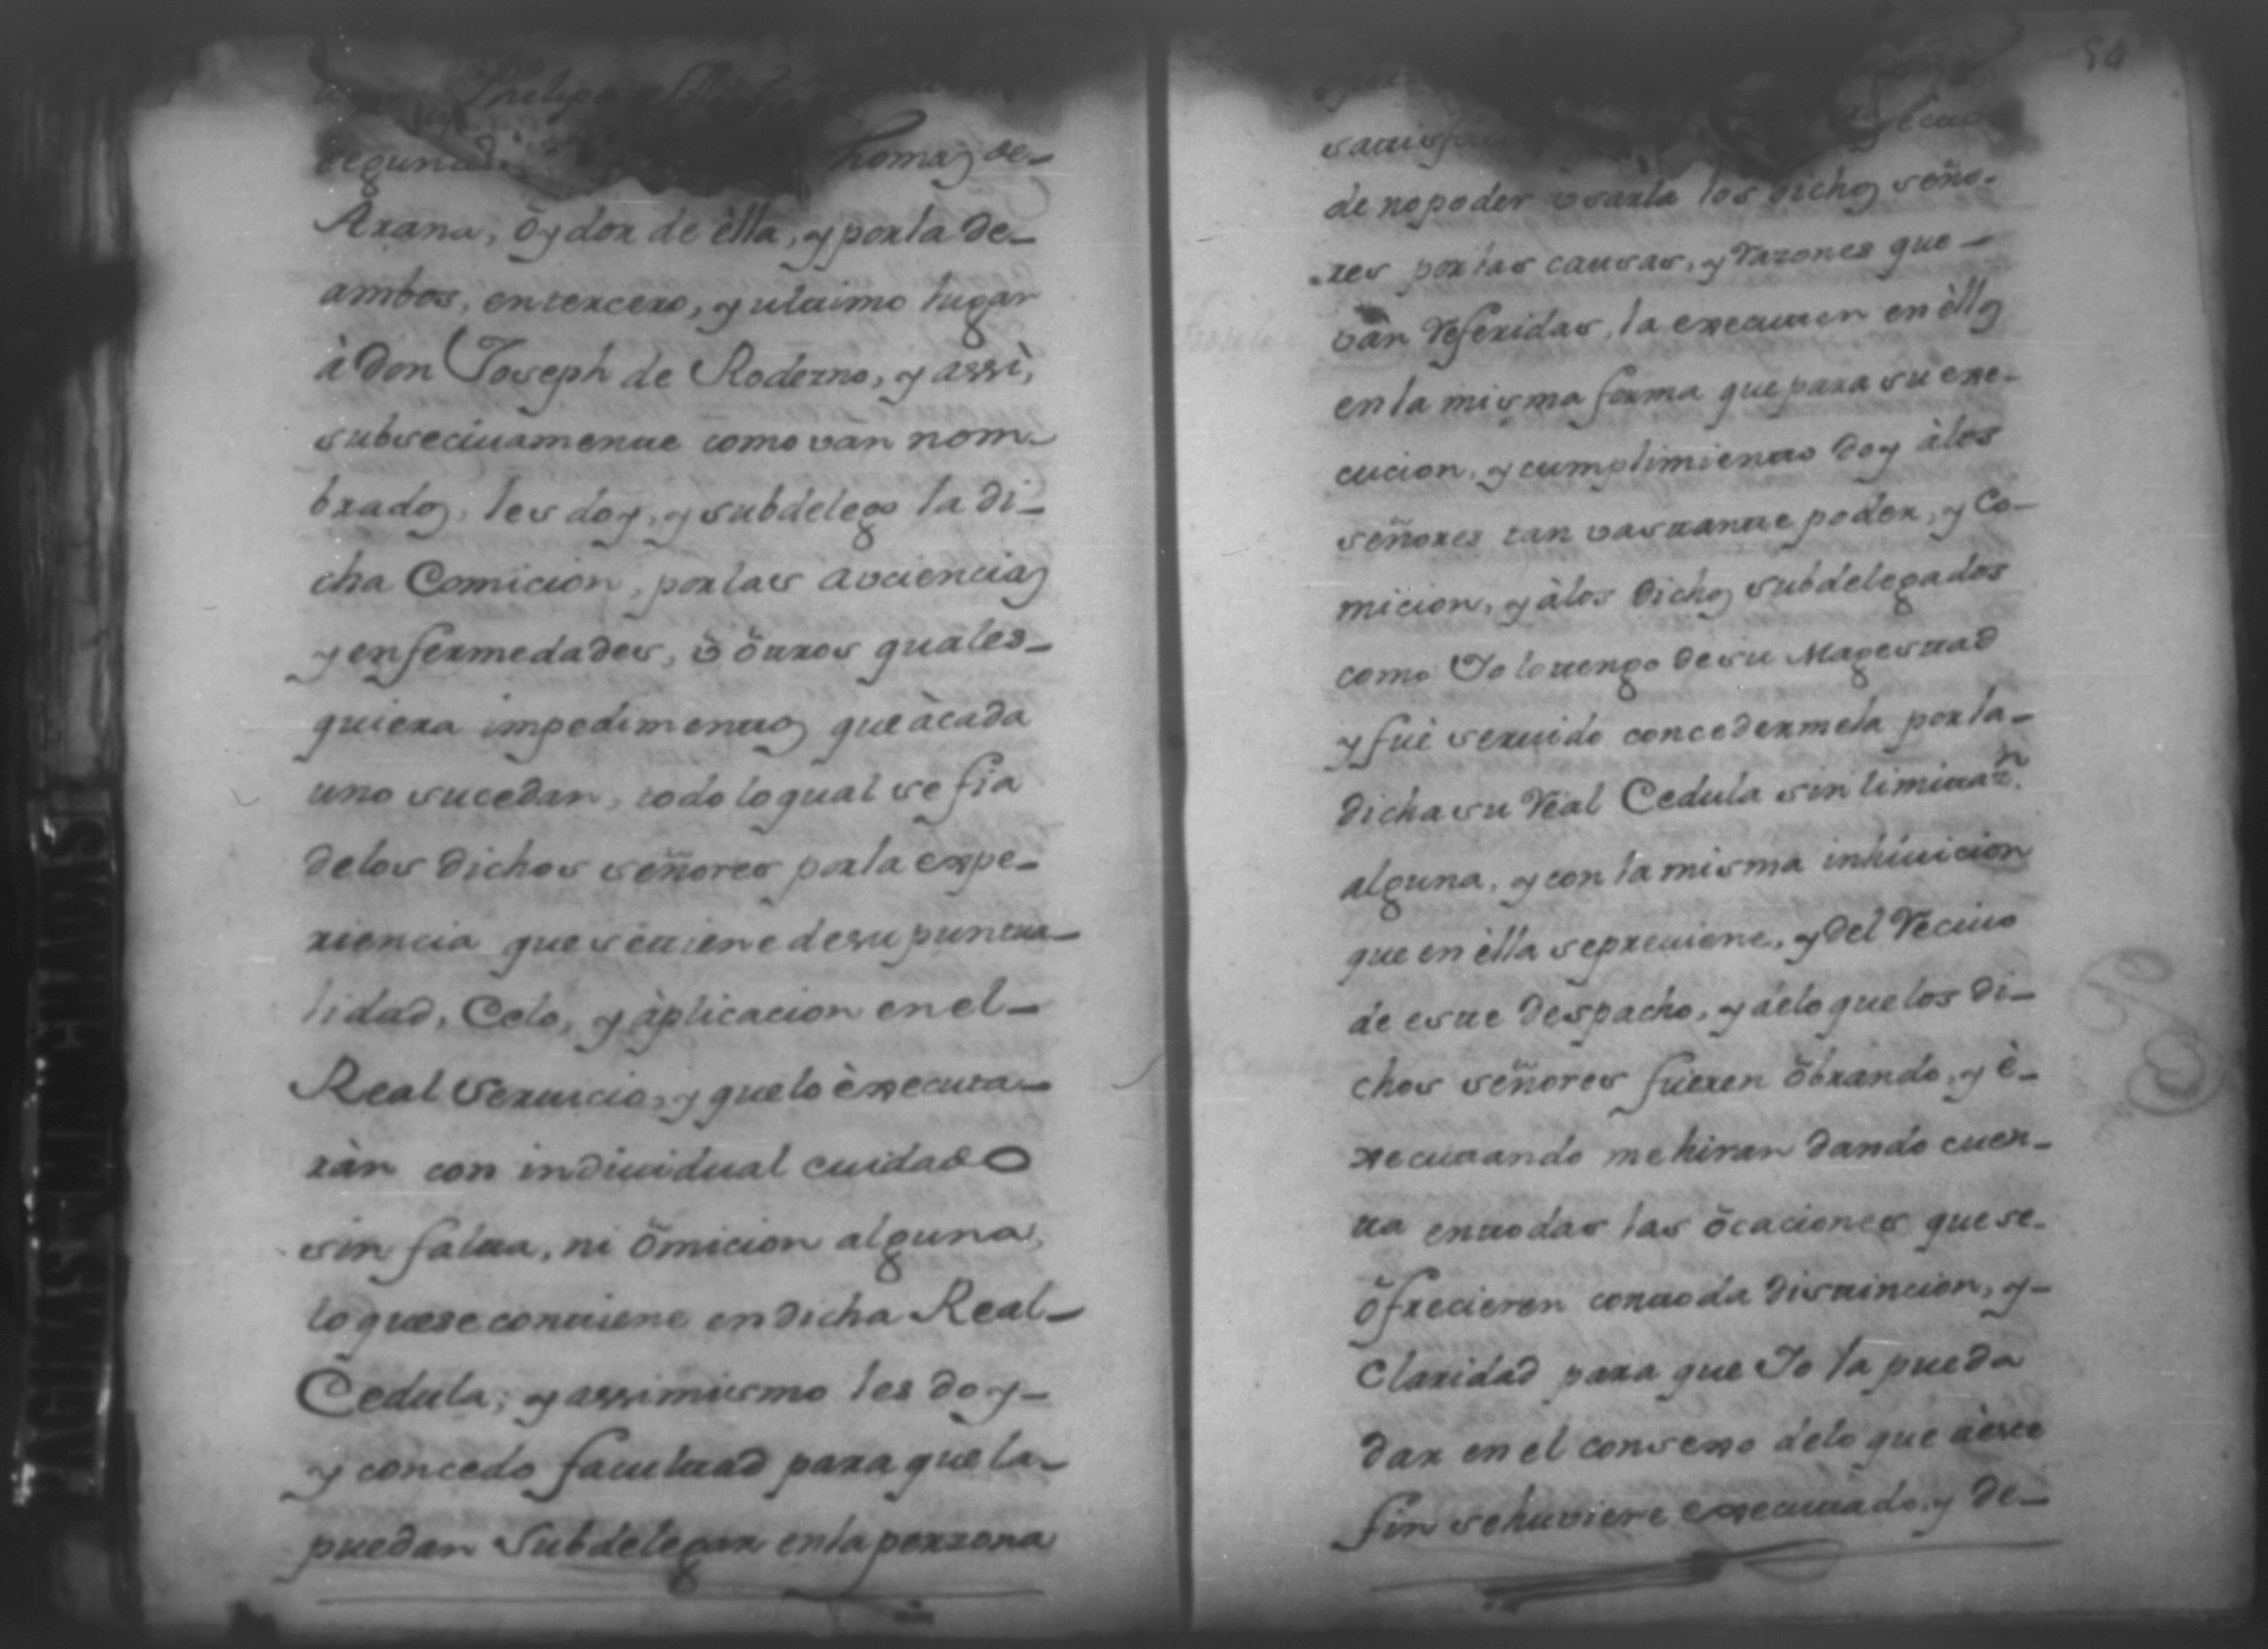 Phelipe
segund homas de-
Arana, õydor de èlla, y porla de-
ambos, entercero, y ultimo lugar
à Don Joseph de Roderno, y assì,
subsectivamente como vàn nom-
brados, les doy, y subdelego la di-
cha Comicion, porlas avciencias
y enfermedades, ù õtros quales-
quiera impedimentos que àcada
uno sucedan, todo loqual se fia
delos dichos señores porla expe-
riencia que setiene desu puntua-
lidad, Celo, y àplicacion enel-
Real Servicio, y quelo èxecuta-
ràn con individual cuidado
sin falta, ni õmicion alguna,
loquese contiene endicha Real-
Cedula; y assimismo les doy-
y concedo facultad para quela-
puedan Subdelegar enla perzona
50
satisf
de nopoder vsarla los dichos seño-
res porlas causas, y razones que-
vàn referidas, la executen en èllos
enla misma forma que para su exe-
cucion, y cumplimiento doy àlos
señores tan vastante poder, y Co-
micion, y àlos dichos subdelegados
como Jo lotengo desu Magestad
y fuè servido concedermela porla-
dicha su Real Cedula sin limitaz.n
alguna, y con la misma inhivicion
que en èlla sepreviene, y del Recivo
de este despacho, y delo quelos di-
chos señores fueren õbrando, y è-
xecutando mehiran dando cuen-
ta entodas las õcaciones que se-
õfrecieren contoda distincion, y-
Claridad para que Jo la pueda
dar en el consexo delo que àeste
fin sehuviere executado, y de-